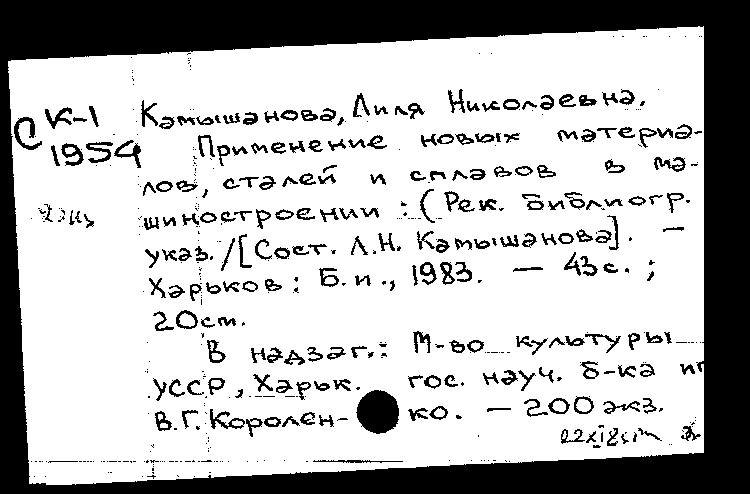 К-1 Камышанова, Лиля Николаевна.
С 1954 Применение новых материа-
лов, сталей и сплавов в ма-
шиностроении : (Рек. библиогр.
указ. /[Сост. Л.Н. Камышанова]. —
Харьков : Б.и., 1983. — 43с. ;
20см.
В надзаг.: М-во культуры
УССР, Харьк. гос. науч. б-ка им
В.Г. Королен- ко. — 200 экз.